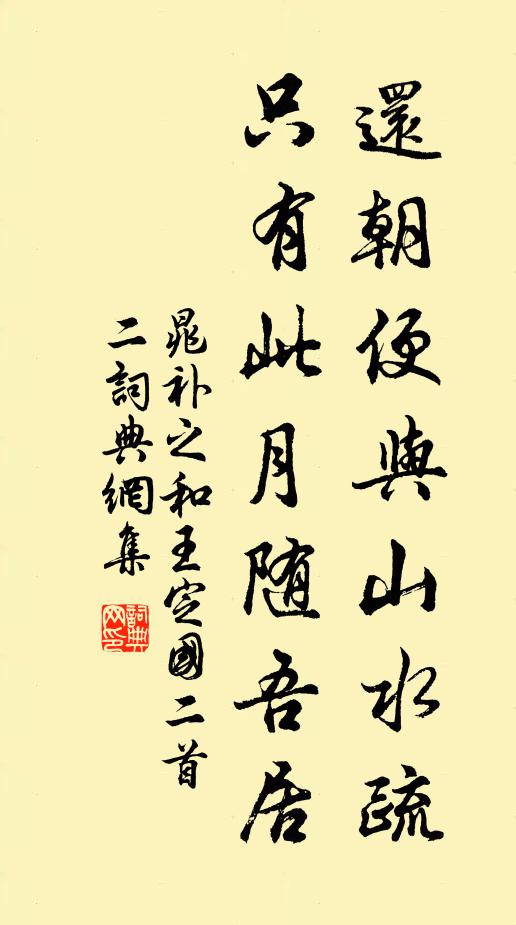 還朝便與山水疏
只有此月随吾居
晁补之和王定國二首
二詞典網集
詞典网印